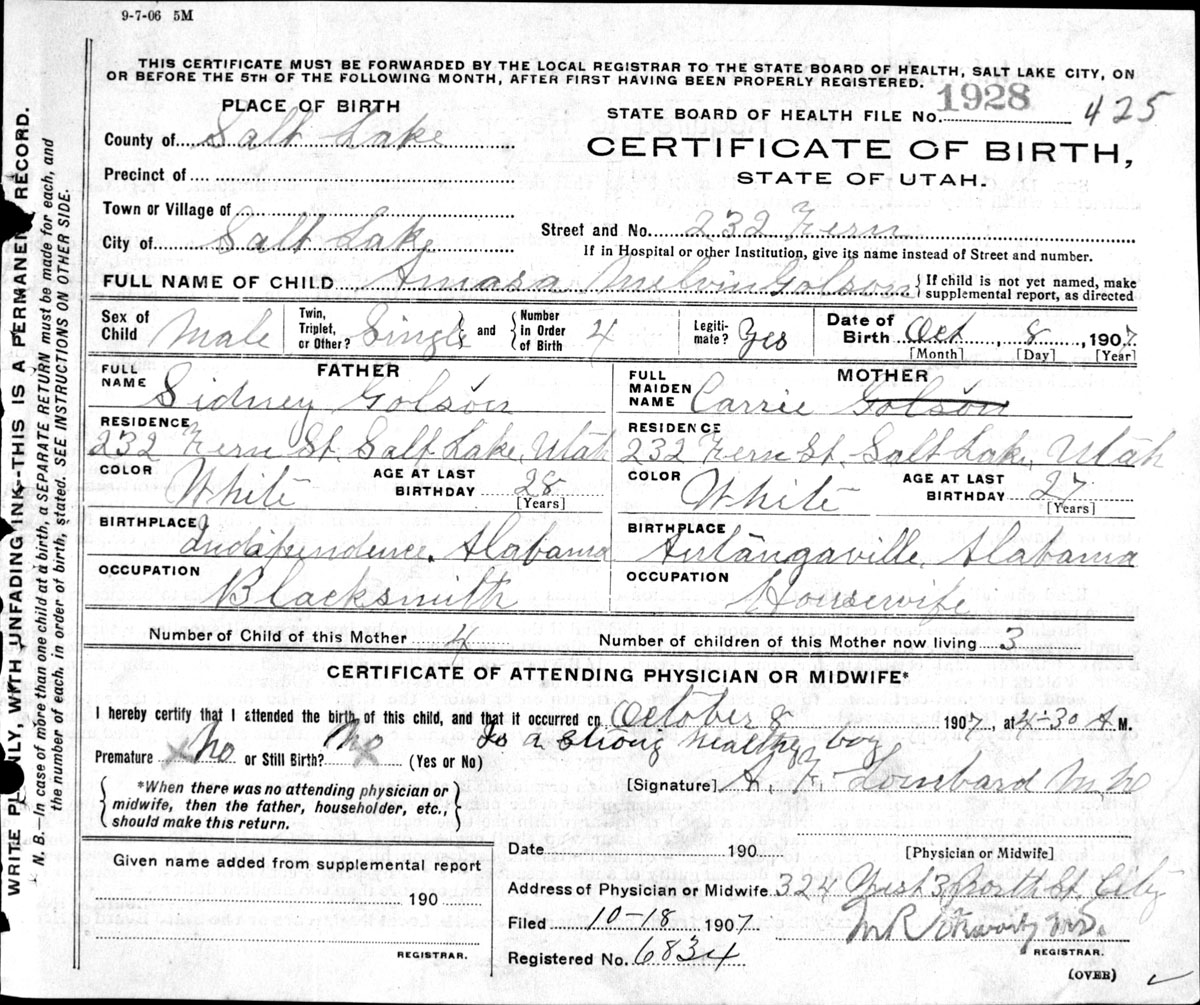 9-7-06 5M
THIS CERTIFICATE MUST BE FORWARDED BY THE LOCAL REGISTRAR TO THE STATE BOARD OF HEALTH, SALT LAKE CITY, ON
OR BEFORE THE 5TH OF THE FOLLOWING MONTH, AFTER FIRST HAVING BEEN PROPERLY REGISTERED.
PLACE OF BIRTH
STATE BOARD OF HEALTH FILE No. 1928 425
County of Salt Lake
CERTIFICATE OF BIRTH,
STATE OF UTAH.
Precinct of
Town or Village of
Street and No. 232 Fern
City of Salt Lake
If in Hospital or other Institution, give its name instead of Street and number.
FULL NAME OF CHILD Amasa Melvin Golson { If child is not yet named, make supplemental report, as directed
Sex of Child Male Twin, Triplet, or Other? Single and Number in Order of Birth 4 Legiti-mate? Yes Date of Birth Oct, 8, 1907
[Month] [Day] [Year]
FATHER
MOTHER
FULL NAME Sidney Golson
FULL MAIDEN NAME Carrie Golson
RESIDENCE
232 Fern St. Salt Lake, Utah
RESIDENCE
232 Fern St. Salt Lake, Utah
COLOR White AGE AT LAST BIRTHDAY 28 [Years]
COLOR White AGE AT LAST BIRTHDAY 27 [Years]
BIRTHPLACE Indapendence, Alabama
BIRTHPLACE Autangaville, Alabama
OCCUPATION Blacksmith
OCCUPATION Housewife
Number of Child of this Mother 4 Number of children of this Mother now living 3
CERTIFICATE OF ATTENDING PHYSICIAN OR MIDWIFE*
I hereby certify that I attended the birth of this child, and that it occurred on October 8 1907, at 4-30 A M.
Is a strong healthy boy
Premature x No or Still Birth? No x (Yes or No)
[Signature] A. F. Lombard
{ *When there was no attending physician or midwife, then the father, householder, etc., should make this return. }
Given name added from supplemental report
190
REGISTRAR.
Date 190
[Physician or Midwife]
Address of Physician or Midwife 324 West 3 North St City
Filed 10-18 1907
Registered No. 6834
REGISTRAR.
(OVER)
WRITE PLAINLY, WITH UNFADING INK—THIS IS A PERMANENT RECORD.
N. B.—In case of more than one child at a birth, a SEPARATE RETURN must be made for each, and
the number of each, in order of birth, stated. SEE INSTRUCTIONS ON OTHER SIDE.